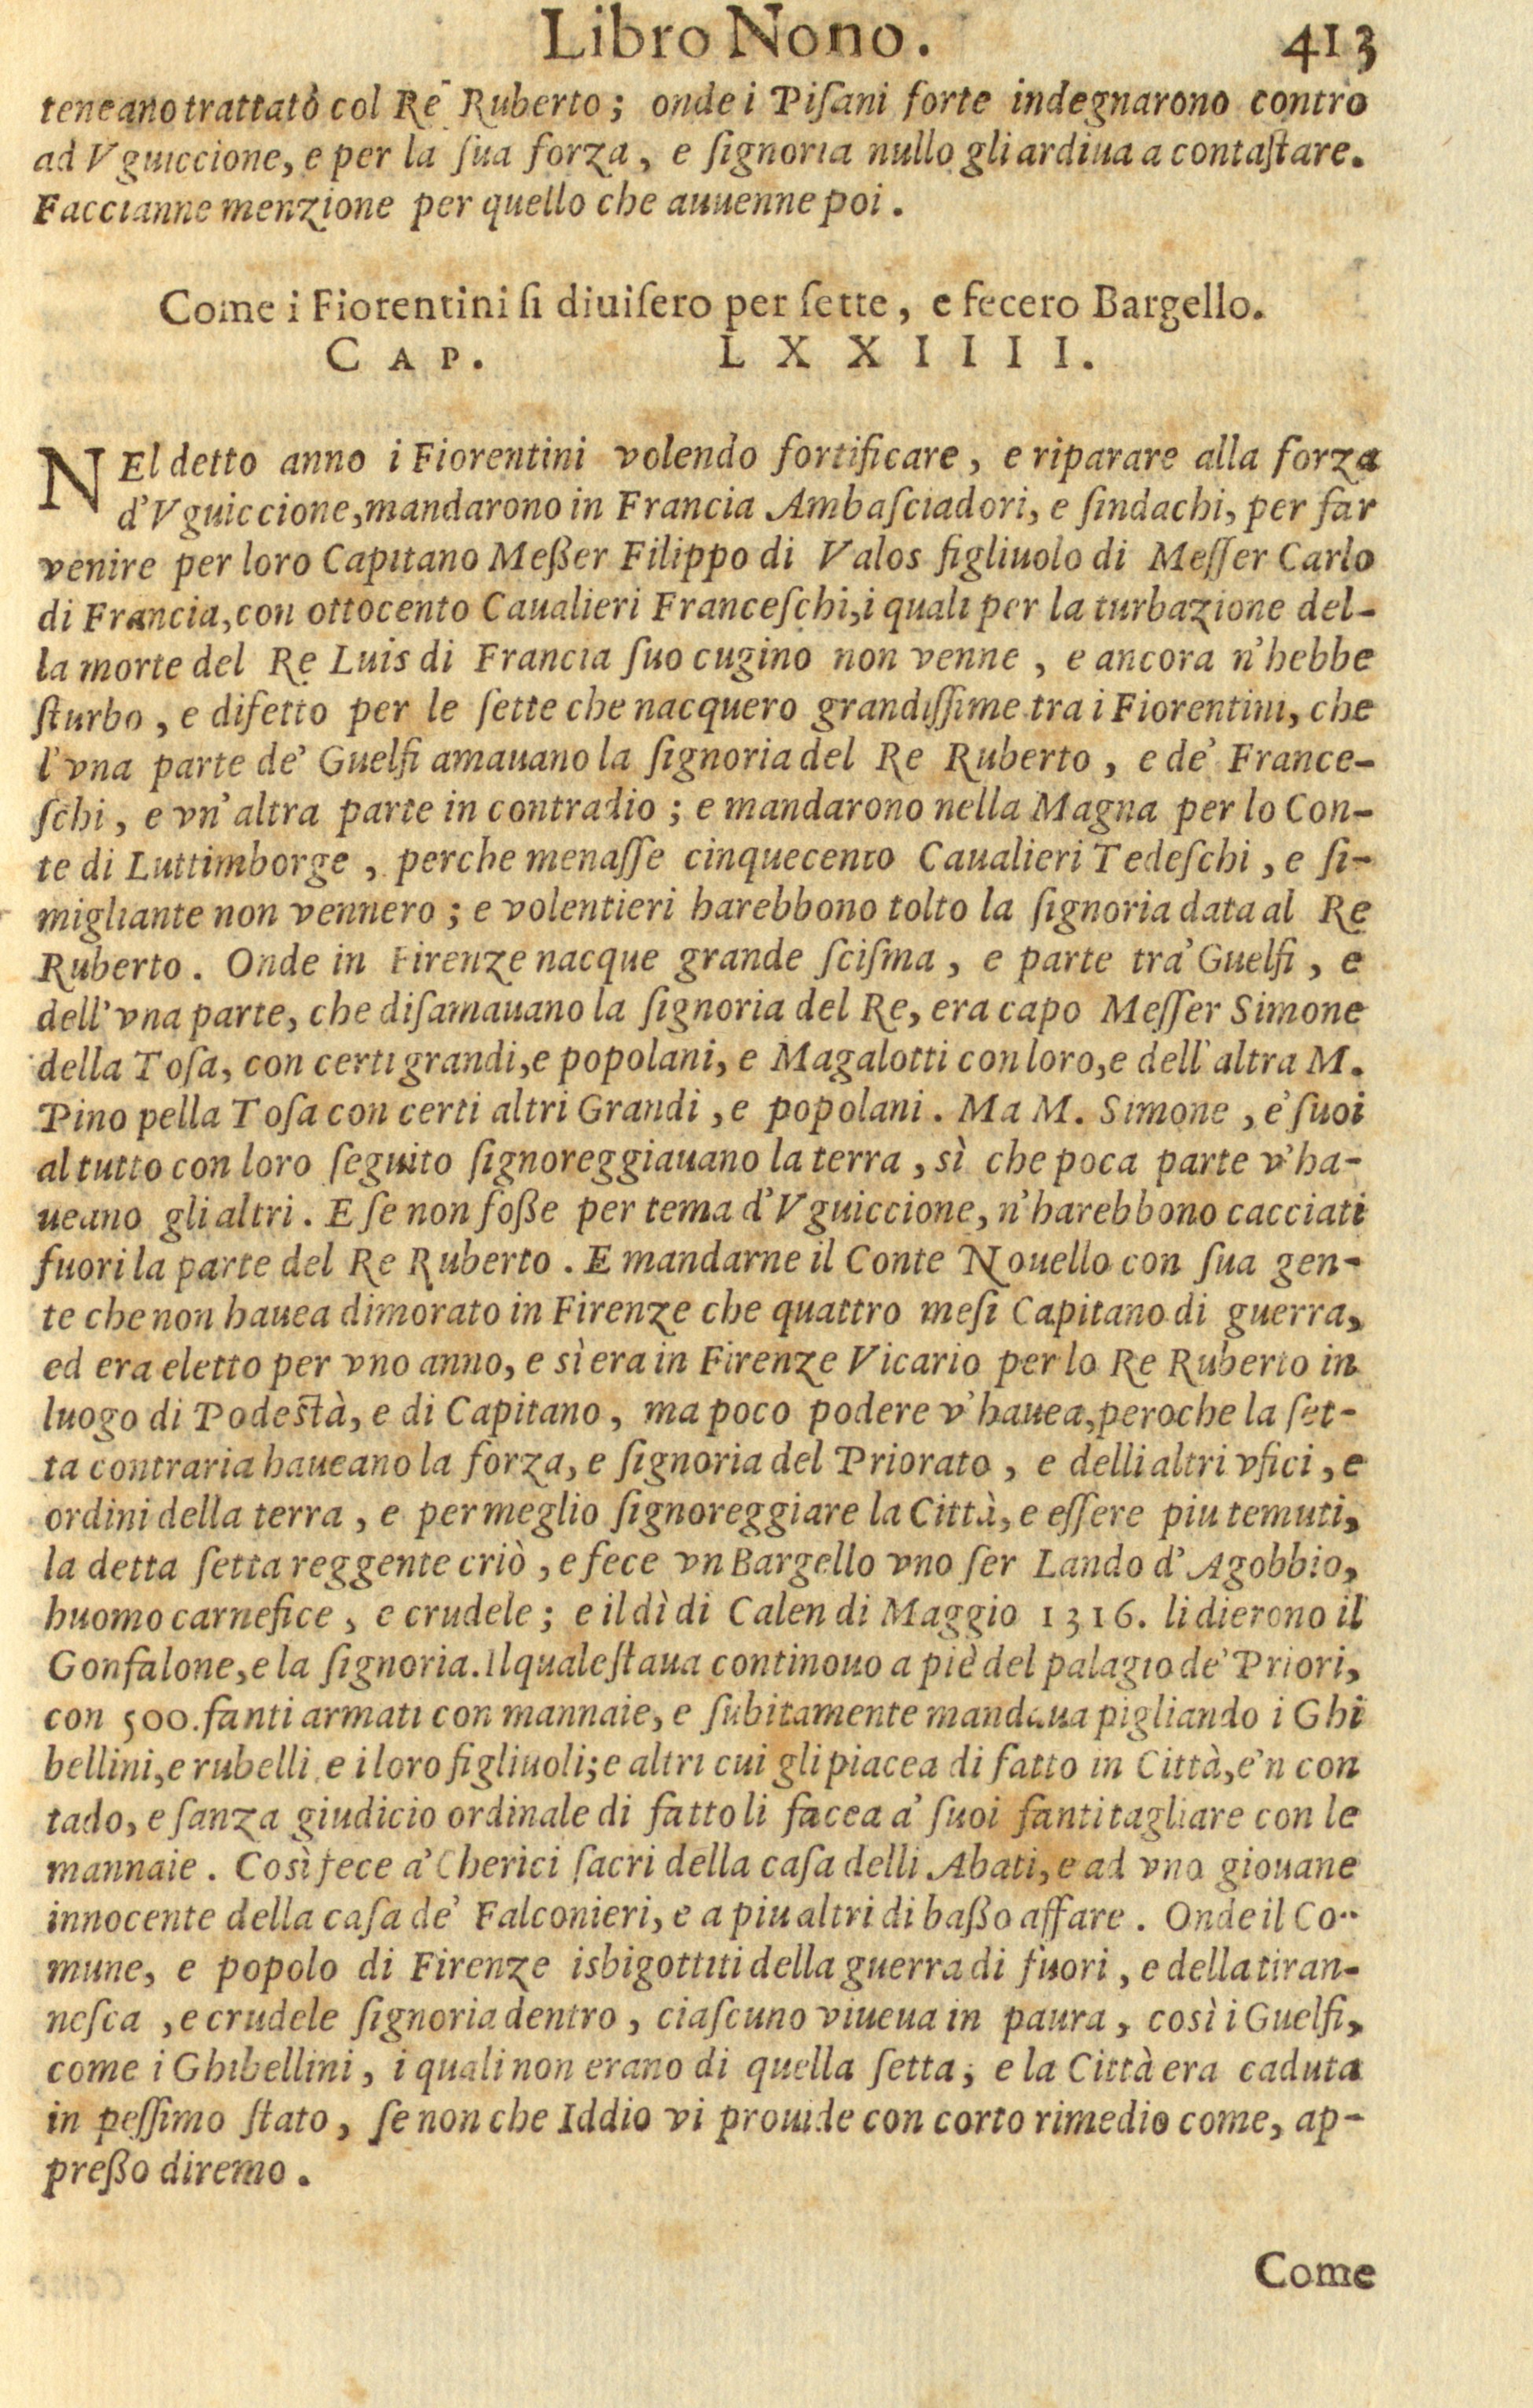 Libro Nono. 413
teneano trattatò col Re Ruberto; onde i Piſani forte indegnarono contro
ad Vguiccione, e per la ſua forza, e ſignoria nullo gli ardiua a contaſtare.
Faccianne menzione per quello che auuenne poi.
Come i Fiorentini ſi diuiſero per ſette, e fecero Bargello.
CAP. LXXIIIII.
NEl detto anno i Fiorentini volendo fortificare, e riparare alla forza
d'Vguiccione, mandarono in Francia Ambaſciadori, e ſindachi, per far
venire per loro Capitano Meßer Filippo di Valos figliuolo di Meſſer Carlo
di Francia, con ottocento Caualieri Franceſchi, i quali per la turbazione del-
la morte del Re Luis di Francia ſuo cugino non venne, e ancora n'hebbe
ſturbo, e difetto per le ſette che nacquero grandiſſime tra i Fiorentini, che
l'vna parte de' Guelfi amauano la ſignoria del Re Ruberto, e de' France-
ſchi, e vn'altra parte in contradio; e mandarono nella Magna per lo Con-
te di Luttimborge, perche menaſſe cinquecento Caualieri Tedeſchi, e ſi-
migliante non vennero; e volentieri harebbono tolto la ſignoria data al Re
Ruberto. Onde in Firenze nacque grande ſciſma, e parte tra' Guelfi, e
dell'vna parte, che diſamauano la ſignoria del Re, era capo Meſſer Simone
della Toſa, con certi grandi, e popolani, e Magalotti con loro, e dell'altra M.
Pino pella Toſa con certi altri Grandi, e popolani. Ma M. Simone, e' ſuoi
al tutto con loro ſeguito ſignoreggiauano la terra, sì che poca parte v'ha-
ueano gli altri. E ſe non foße per tema d'Vguiccione, n'harebbono cacciati
fuori la parte del Re Ruberto. E mandarne il Conte Nouello con ſua gen-
te che non hauea dimorato in Firenze che quattro meſi Capitano di guerra,
ed era eletto per vno anno, e sì era in Firenze Vicario per lo Re Ruberto in
luogo di Podeſtà, e di Capitano, ma poco podere v'hauea, peroche la ſet-
ta contraria haueano la forza, e ſignoria del Priorato, e delli altri vfici, e
ordini della terra, e per meglio ſignoreggiare la Città, e eſſere piu temuti,
la detta ſetta reggente criò, e fece vn Bargello vno ſer Lando d'Agobbio,
huomo carnefice, e crudele; e il dì di Calen di Maggio 1316. li dierono il
Gonfalone, e la ſignoria. Il quale ſtaua continouo a piè del palagio de' Priori,
con 500. fanti armati con mannaie, e ſubitamente mandaua pigliando i Ghi
bellini, e rubelli e i loro figliuoli; e altri cui gli piacea di fatto in Città, e'n con
tado, e ſanza giudicio ordinale di fatto li facea a' ſuoi fanti tagliare con le
mannaie. Così fece a' Cherici ſacri della caſa delli Abati, e ad vno giouane
innocente della caſa de' Falconieri, e a piu altri di baßo affare. Onde il Co-
mune, e popolo di Firenze isbigottiti della guerra di fuori, e della tiran-
neſca, e crudele ſignoria dentro, ciaſcuno viueua in paura, così i Guelfi,
come i Ghibellini, i quali non erano di quella ſetta, e la Città era caduta
in peſſimo ſtato, ſe non che Iddio vi prouide con corto rimedio come, ap-
preßo diremo.
Come